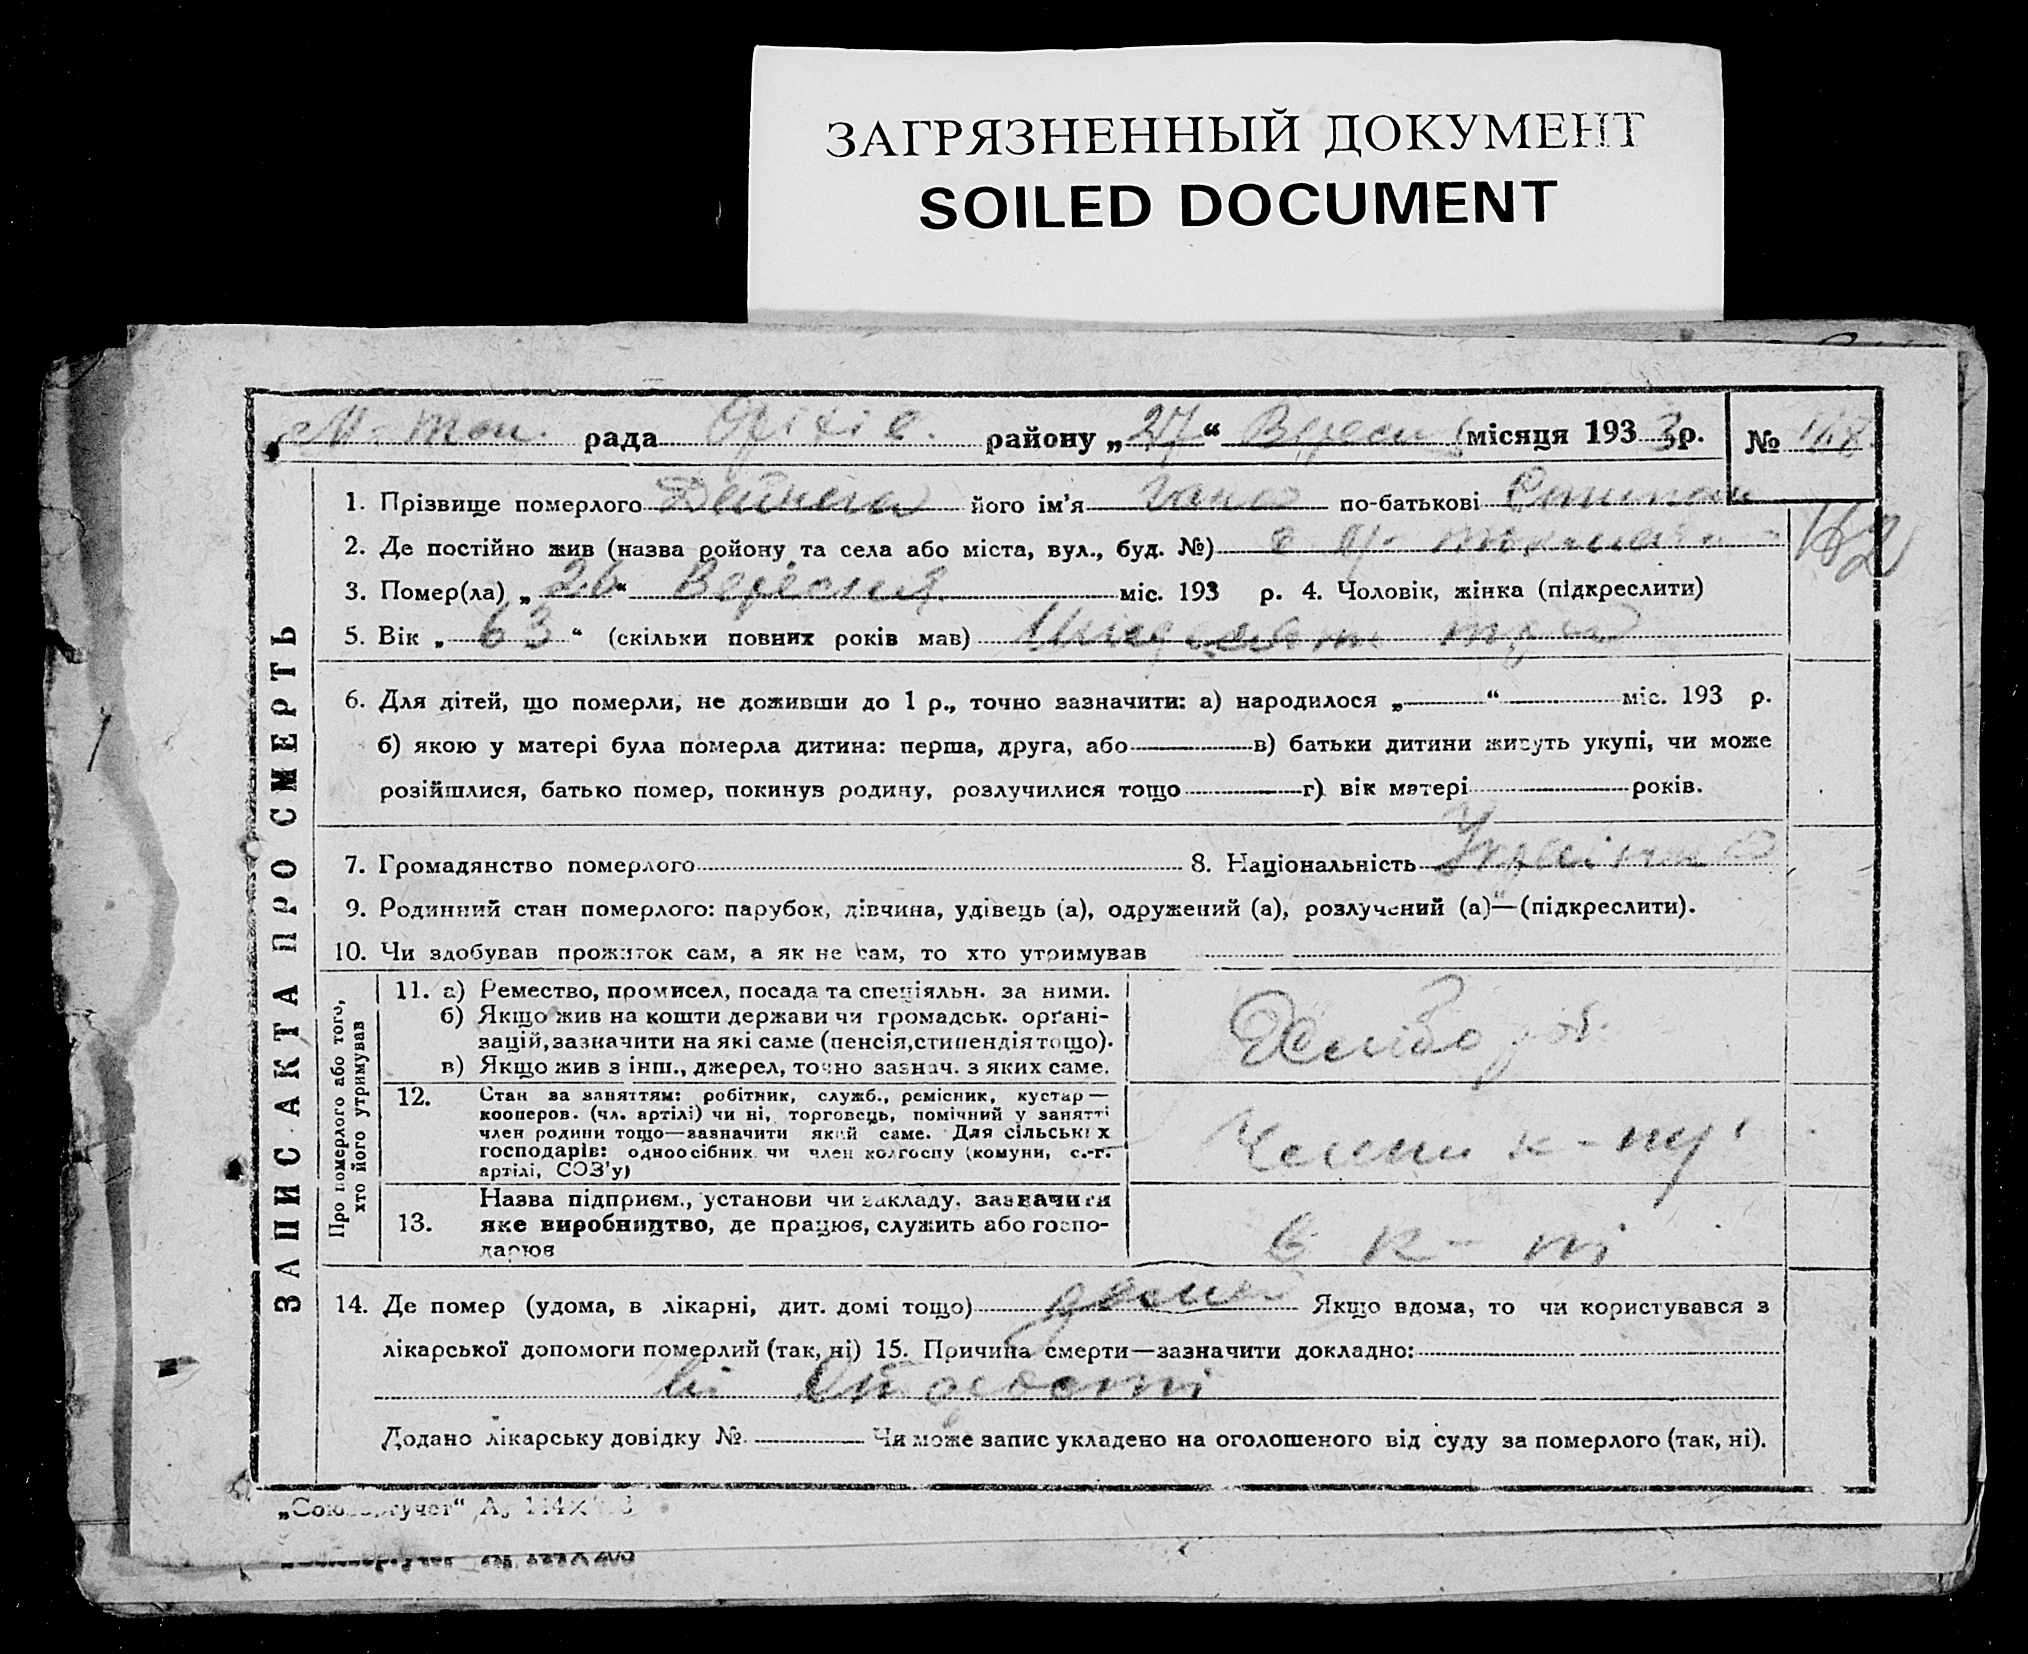 ЗАГРЯЗНЕННЫЙ ДОКУМЕНТ
SOILED DOCUMENT
рада Оріхів. району „27“ Вересня місяця 1933 р. №
1. Прізвище померлого його ім'я по-батькові
2. Де постійно жив (назва ройону та села або міста, вул., буд. №)
3. Помер(ла) „26“ Вересня міс. 193 р. 4. Чоловік, жінка (підкреслити)
5. Вік „63“ (скільки повних років мав) три
6. Для дітей, що померли, не доживши до 1 р., точно зазначити: а) народилося „ “ міс. 193 р.
б) якою у матері була померла дитина: перша, друга, або в) батьки дитини живуть укупі, чи може
розійшлися, батько помер, покинув родину, розлучилися тощо г) вік матері років.
7. Громадянство померлого 8. Національність
9. Родинний стан померлого: парубок, дівчина, удівець (а), одружений (а), розлучений (а)—(підкреслити).
10. Чи здобував прожиток сам, а як не сам, то хто утримував
ЗАПИС АКТА ПРО СМЕРТЬ
Про померлого або того, хто його утримував
11. а) Ремество, промисел, посада та спеціяльн. за ними.
б) Якщо жив на кошти держави чи громадськ. орґані-
зацій, зазначити на які саме (пенсія, стипендія тощо).
в) Якщо жив з інш., джерел, точно зазнач. з яких саме.
Хлібороб.
12. Стан за заняттям: робітник, служб., ремісник, кустар—
кооперов. (чл. артілі) чи ні, торговець, помічний у занятті
член родини тощо—зазначити який саме. Для сільських
господарів: одноосібник чи член колгоспу (комуни, с.-г.
артілі, СОЗ'у)
к-пу
13. Назва підприєм., установи чи закладу, зазначити
яке виробництво, де працює, служить або госпо-
дарює
в к-пі
14. Де помер (удома, в лікарні, дит. домі тощо) дома Якщо вдома, то чи користувався з
лікарської допомоги померлий (так, ні) 15. Причина смерти—зазначити докладно:
Від старости
Додано лікарську довідку № Чи може запис укладено на оголошеного від суду за померлого (так, ні).